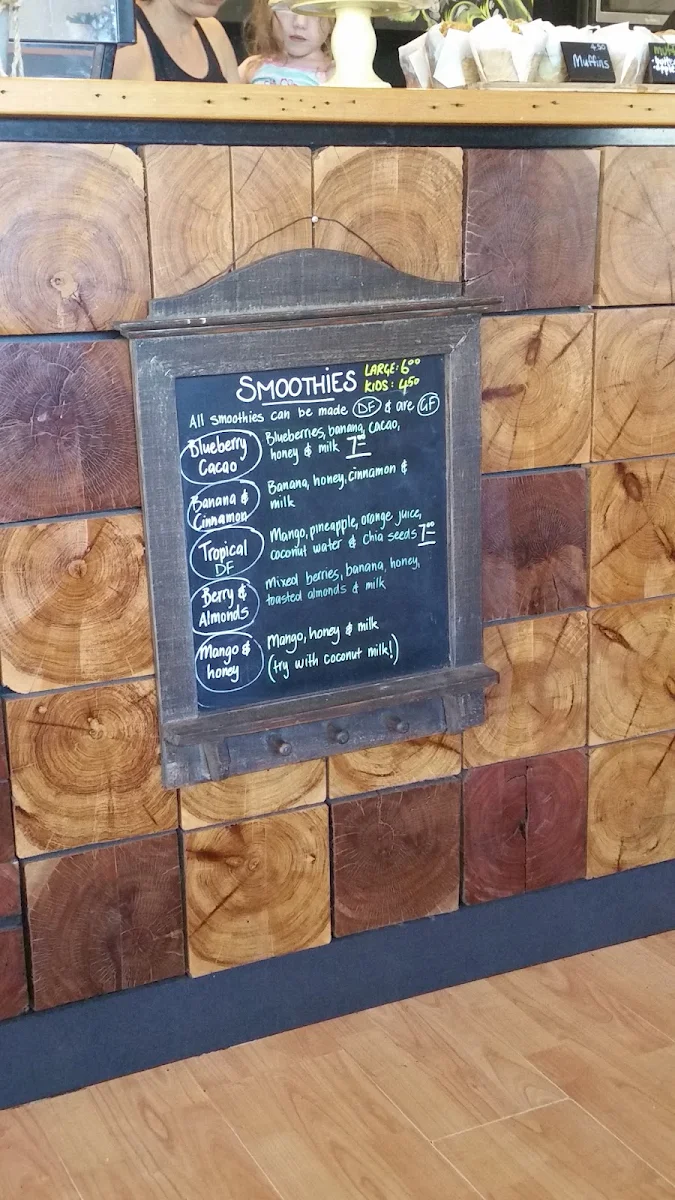 4.50
Muffins
SMOOTHIES
LARGE: 6.00
KIDS: 4.50
All smoothies can be made DF & are GF
Blueberry Cacao
Blueberries, banana, cacao,
honey & milk 7.00
Banana & Cinnamon
Banana, honey, cinnamon &
milk
Tropical DF
Mango, pineapple, orange juice,
coconut water & chia seeds 7.00
Berry & Almonds
Mixed berries, banana, honey,
toasted almonds & milk
Mango & honey
Mango, honey & milk
(try with coconut milk!)